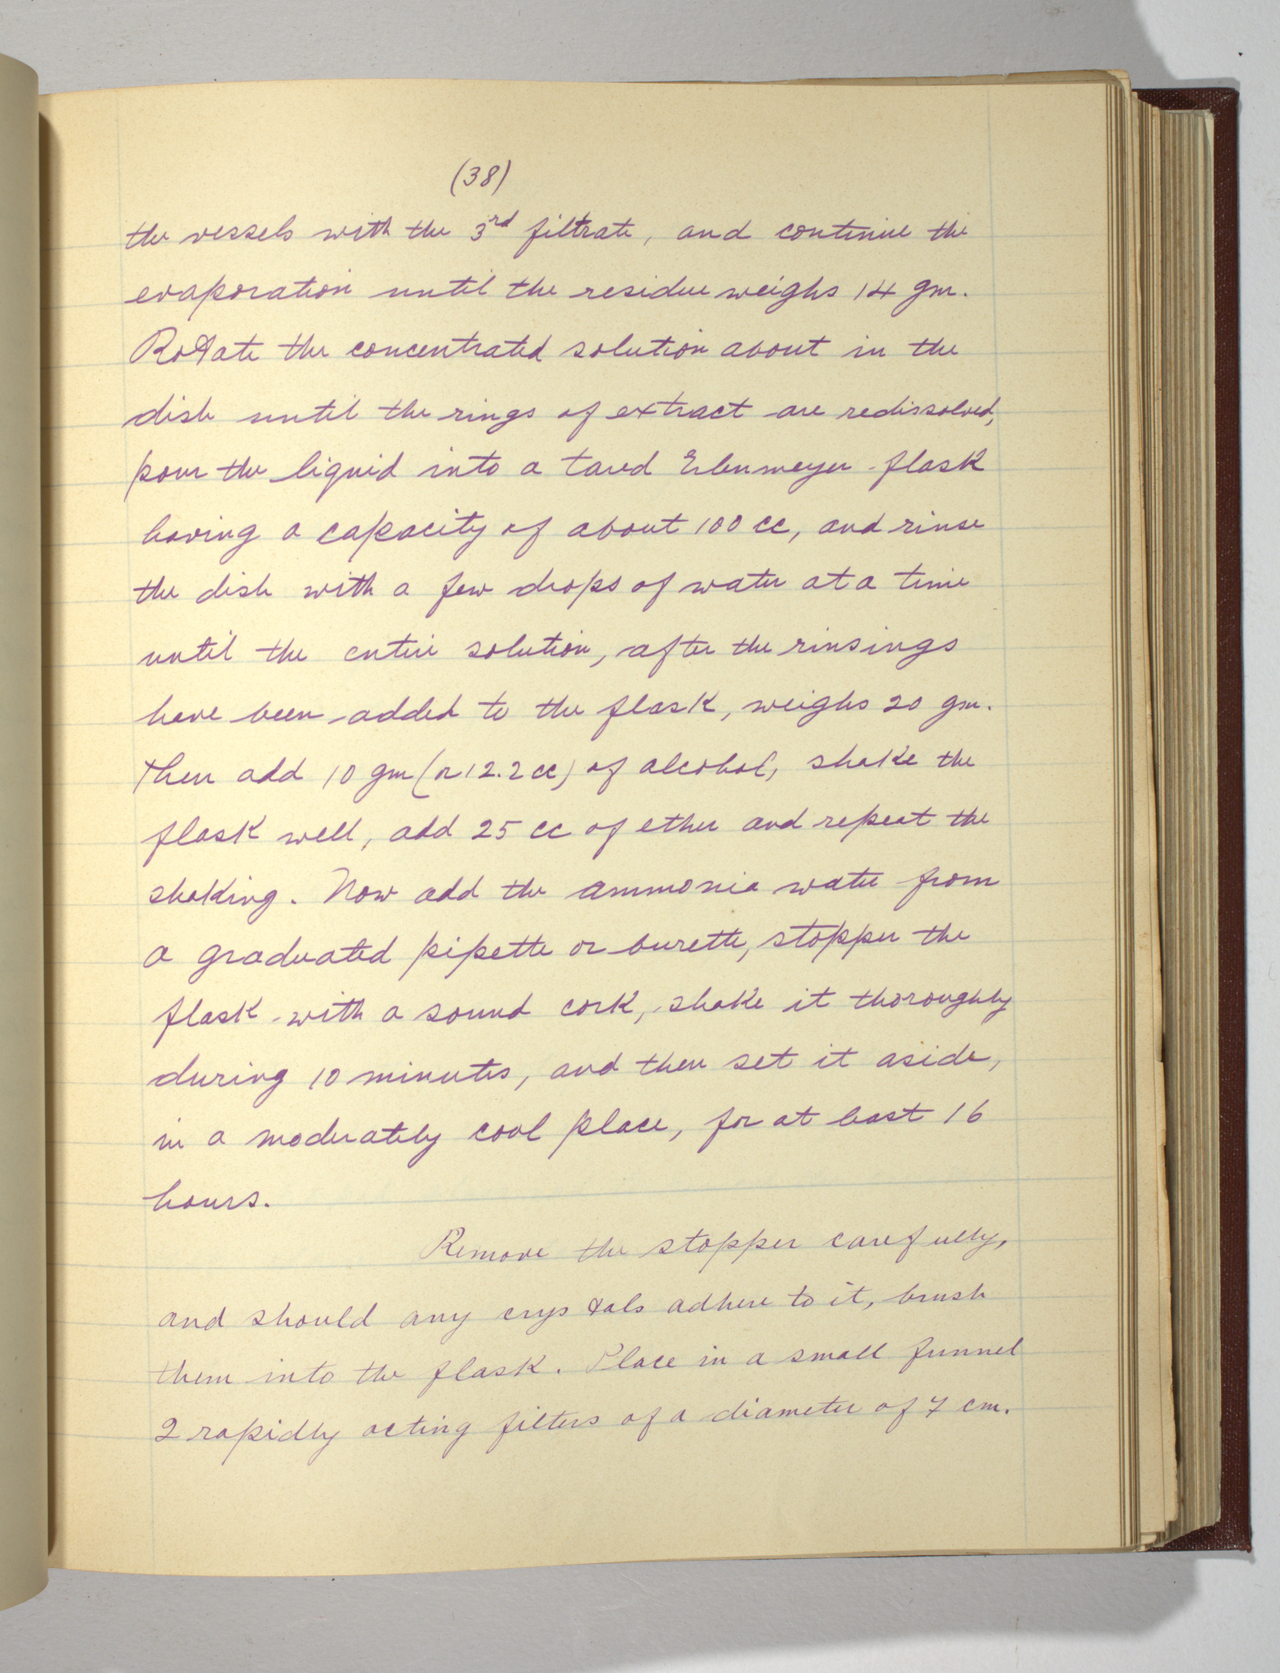 (38)
the vessels with the 3rd filtrate, and continue the
evaporation until the residue weighs 14 gm.
Rotate the concentrated solution about in the
dish until the rings of extract are redissolved,
pour the liquid into a tared Erlenmeyer flask
having a capacity of about 100 cc, and rinse
the dish with a few drops of water at a time
until the entire solution, after the rinsings
have been added to the flask, weighs 20 gm.
Then add 10 gm (or 12.2 cc) of alcohol, shake the
flask well, add 25 cc of ether and repeat the
shaking. Now add the ammonia water from
a graduated pipette or burette, stopper the
flask with a sound cork, shake it thoroughly
during 10 minutes, and then set it aside,
in a moderately cool place, for at least 16
hours.
Remove the stopper carefully,
and should any crystals adhere to it, brush
them into the flask. Place in a small funnel
2 rapidly acting filters of a diameter of 7 cm.